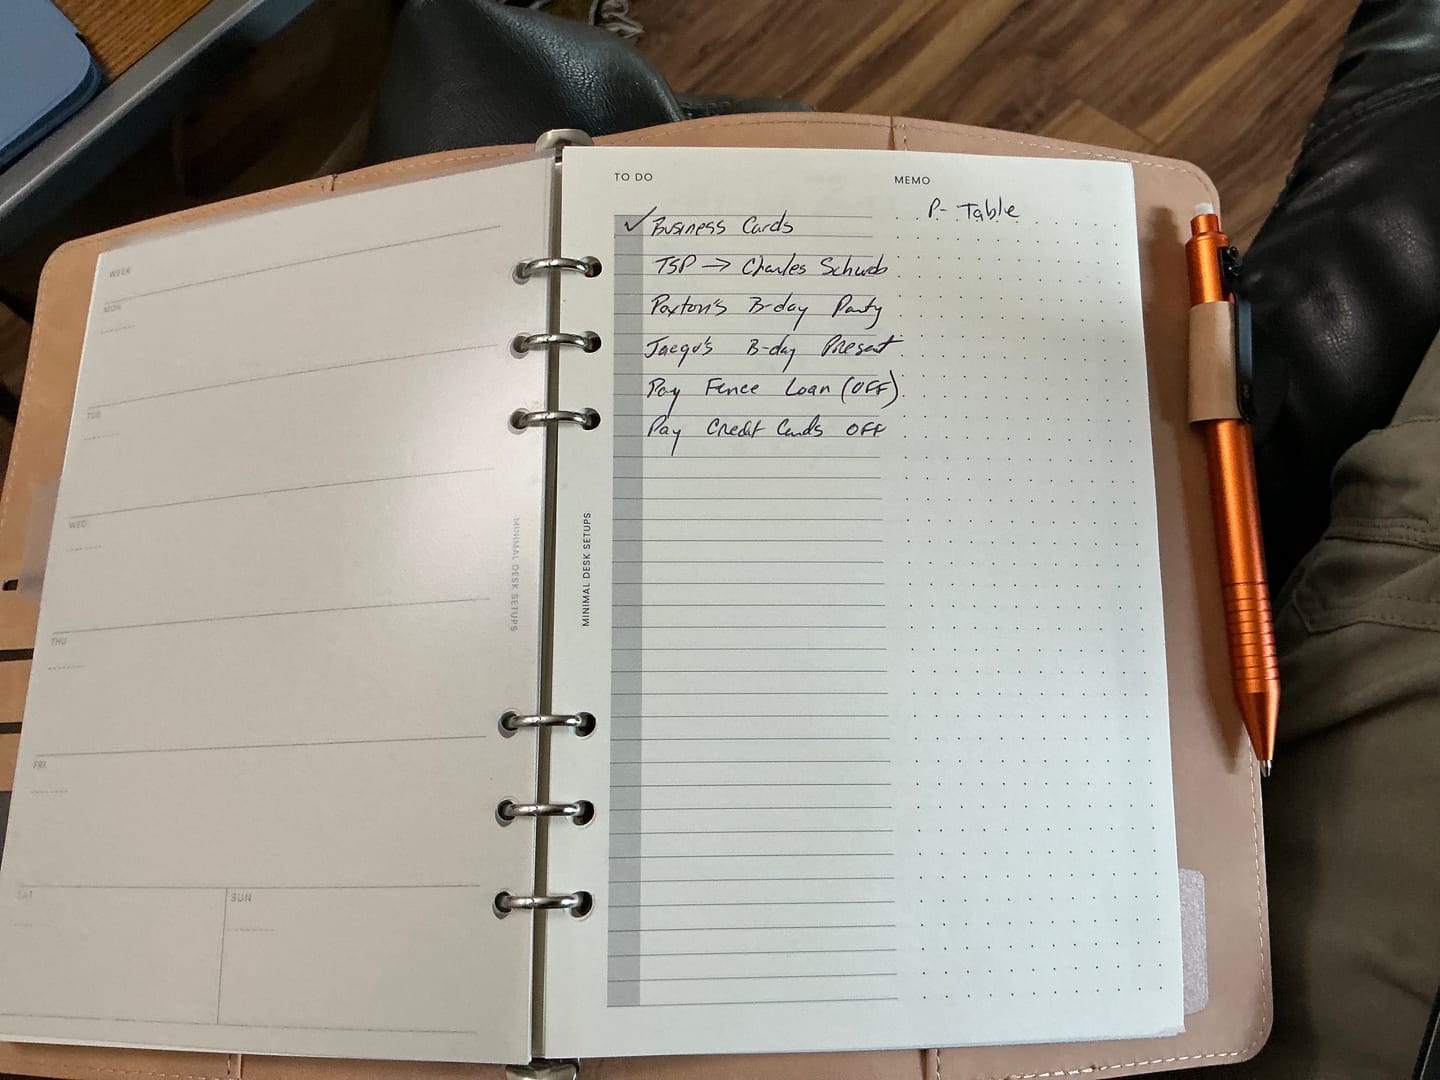 WEEK
MON
TUE
WED
THU
FRI
SAT
SUN
MINIMAL DESK SETUPS
MINIMAL DESK SETUPS
TO DO
✓ Business Cards
TSP → Charles Schwab
Paxton's B-day Party
B-day Present
Pay Fence Loan (OFF)
Pay Credit Cards OFF
MEMO
P- Table